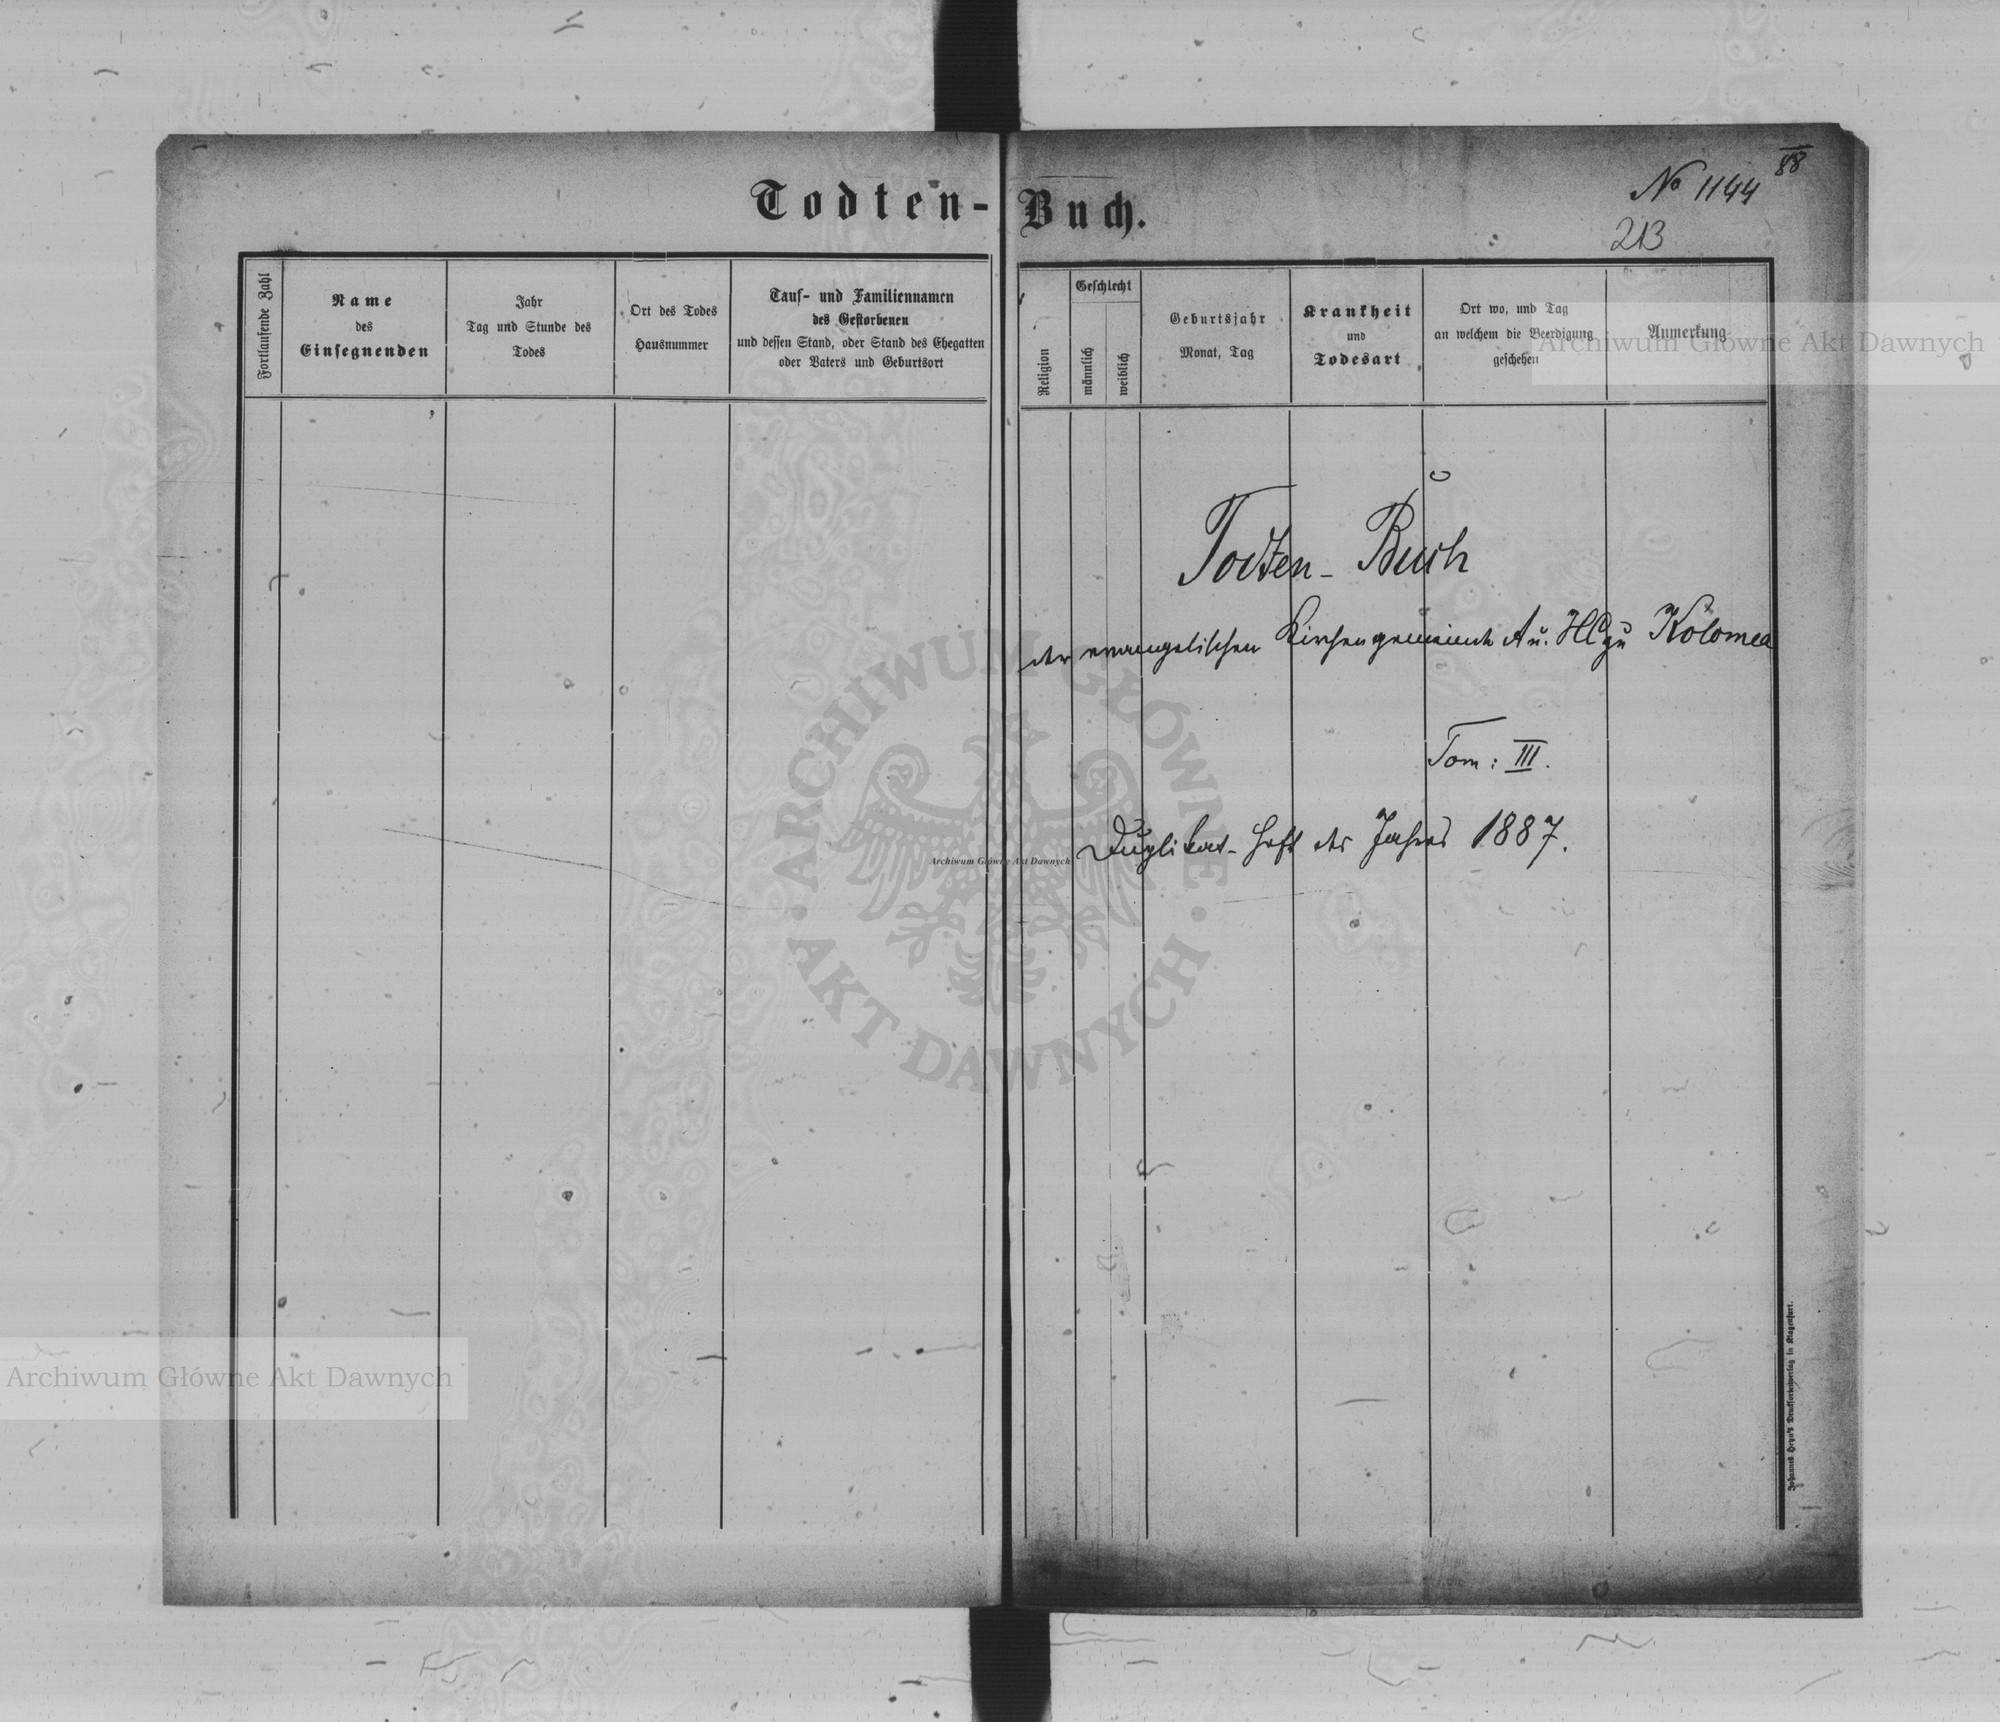 Todten-Buch.
No 1144
88
213
Fortlaufende Zahl
Name
des
Einsegnenden
Jahr
Tag und Stunde des
Todes
Ort des Todes
Hausnummer
Tauf- und Familiennamen
des Gestorbenen
und dessen Stand, oder Stand des Ehegatten
oder Vaters und Geburtsort
Religion
Geschlecht
männlich
weiblich
Geburtsjahr
Monat, Tag
Krankheit
und
Todesart
Ort wo, und Tag
an welchem die Beerdigung
geschehen
Anmerkung
Archiwum Główne Akt Dawnych
Todten-Buch
der evangelischen Kirchengemeinde A u. HC zu Kolomea
Tom: III.
Duplikat-Heft des Jahres 1887.
ARCHIWUM GŁÓWNE
AKT DAWNYCH
Archiwum Główne Akt Dawnych
Archiwum Główne Akt Dawnych
Johannes Heyn's Drucksortenverlag in Klagenfurt.